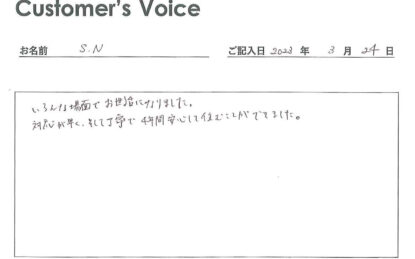 Customer's Voice
お名前 S.N ご記入日 2023 年 3 月 24 日
いろんな場面でお世話になりました。
対応が早く、そして丁寧で 4年間安心して住むことができました。